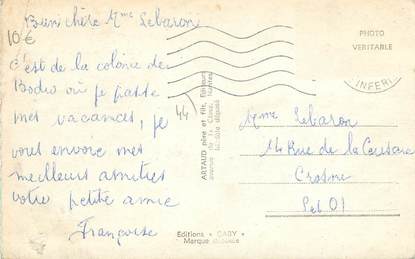 Bien chère Mme Lebaron
10€
C'est de la colonie de
où je passe
mes vacances, je
vous envoie mes
meilleurs amitiés
votre petite amie
Françoise
44
PHOTO
VERITABLE
INFERI
ARTAUD père et fils, Éditeurs
Nantes
Modèle déposé
Mme Lebaron
14 Rue de la
Crosne
Editions « GABY »
Marque déposée